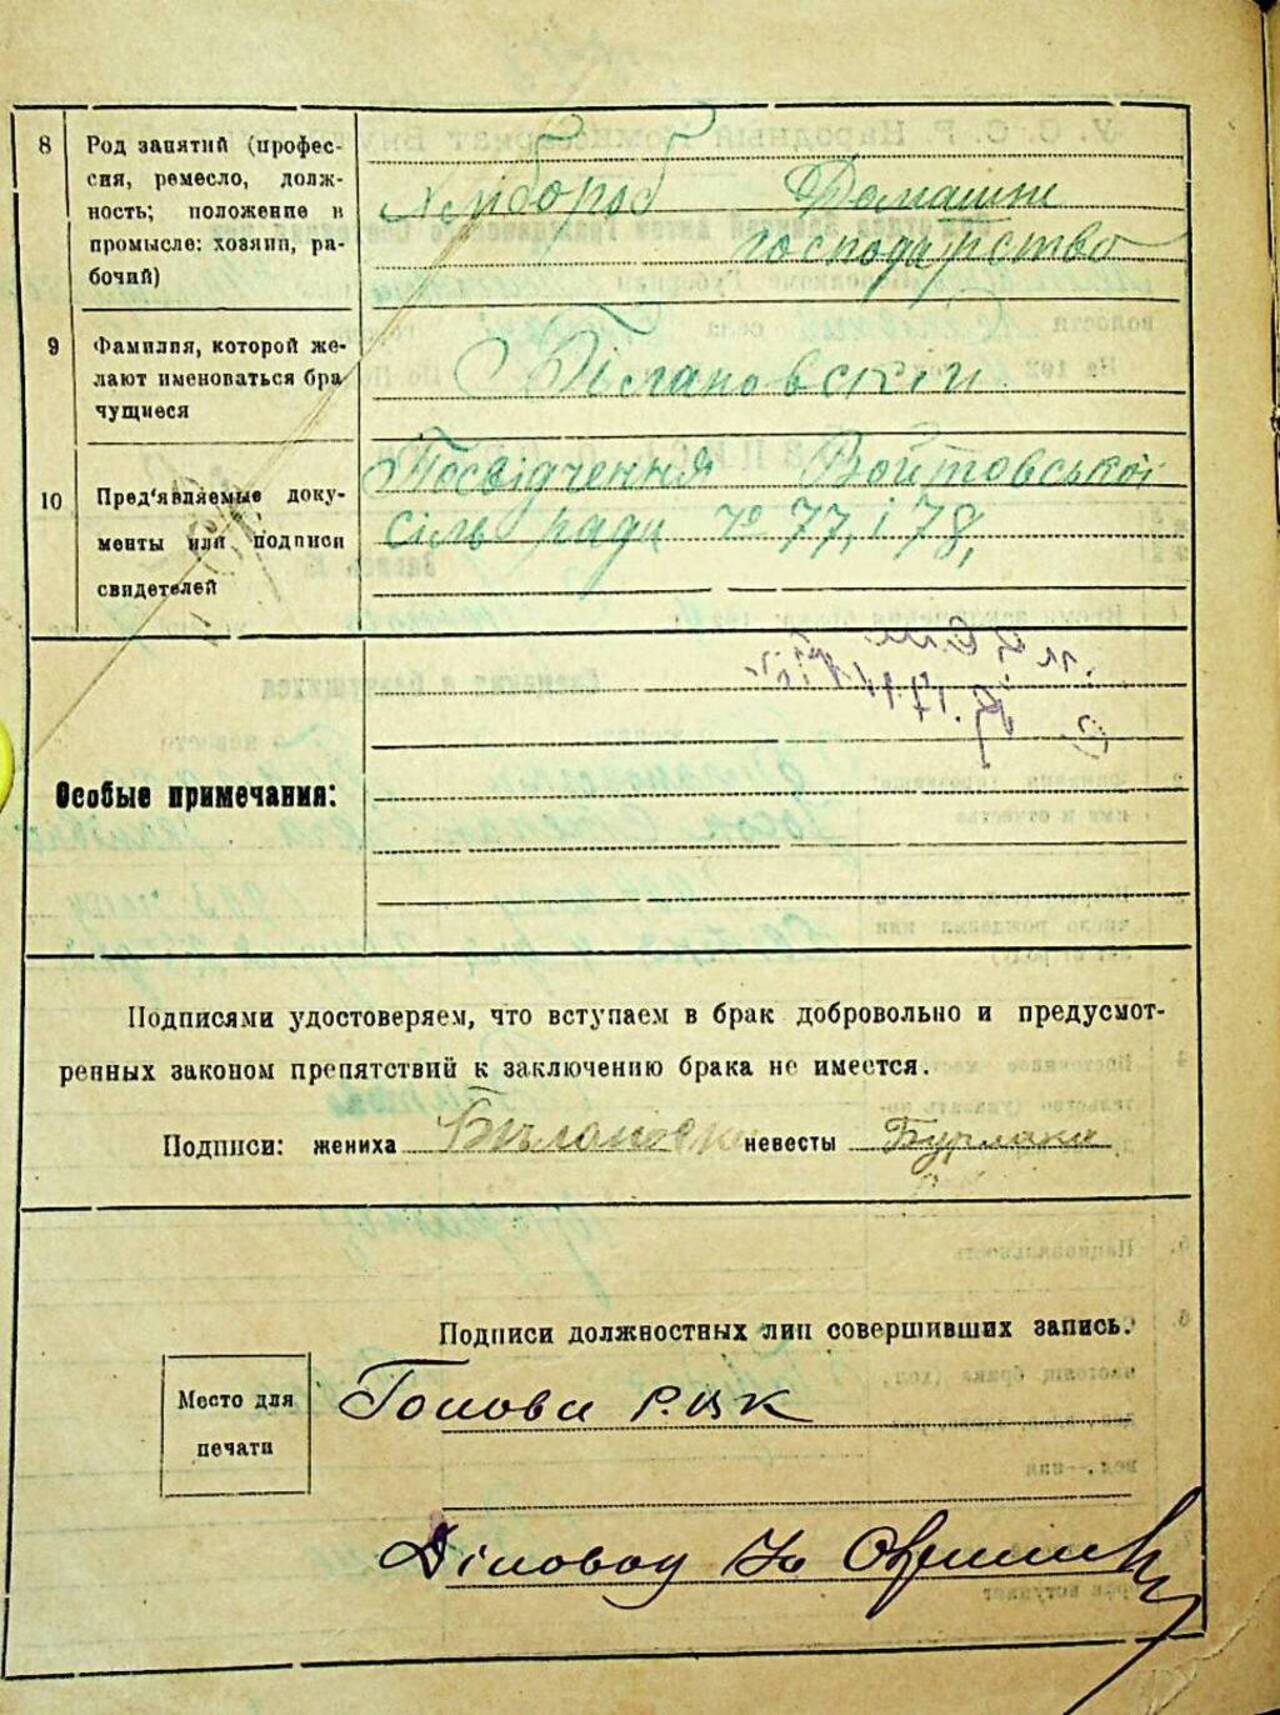 8 Род занятий (профес-
сия, ремесло, долж-
ность; положение в
промысле: хозяин, ра-
бочий)
Хлібороб Домашнє
господарство
9 Фамилия, которой же-
лают именоваться бра
чущиеся
Білановскій
10 Пред'являемые доку-
менты или подписи
свидетелей
Посвідчення Войтовської
сіль ради № 77, і 78,
Особые примечания:
Подписями удостоверяем, что вступаем в брак добровольно и предусмот-
ренных законом препятствий к заключению брака не имеется.
Подписи: жениха невесты Бурлака
Подписи должностных лиц совершивших запись.
Место для
печати
Голова
Діловод